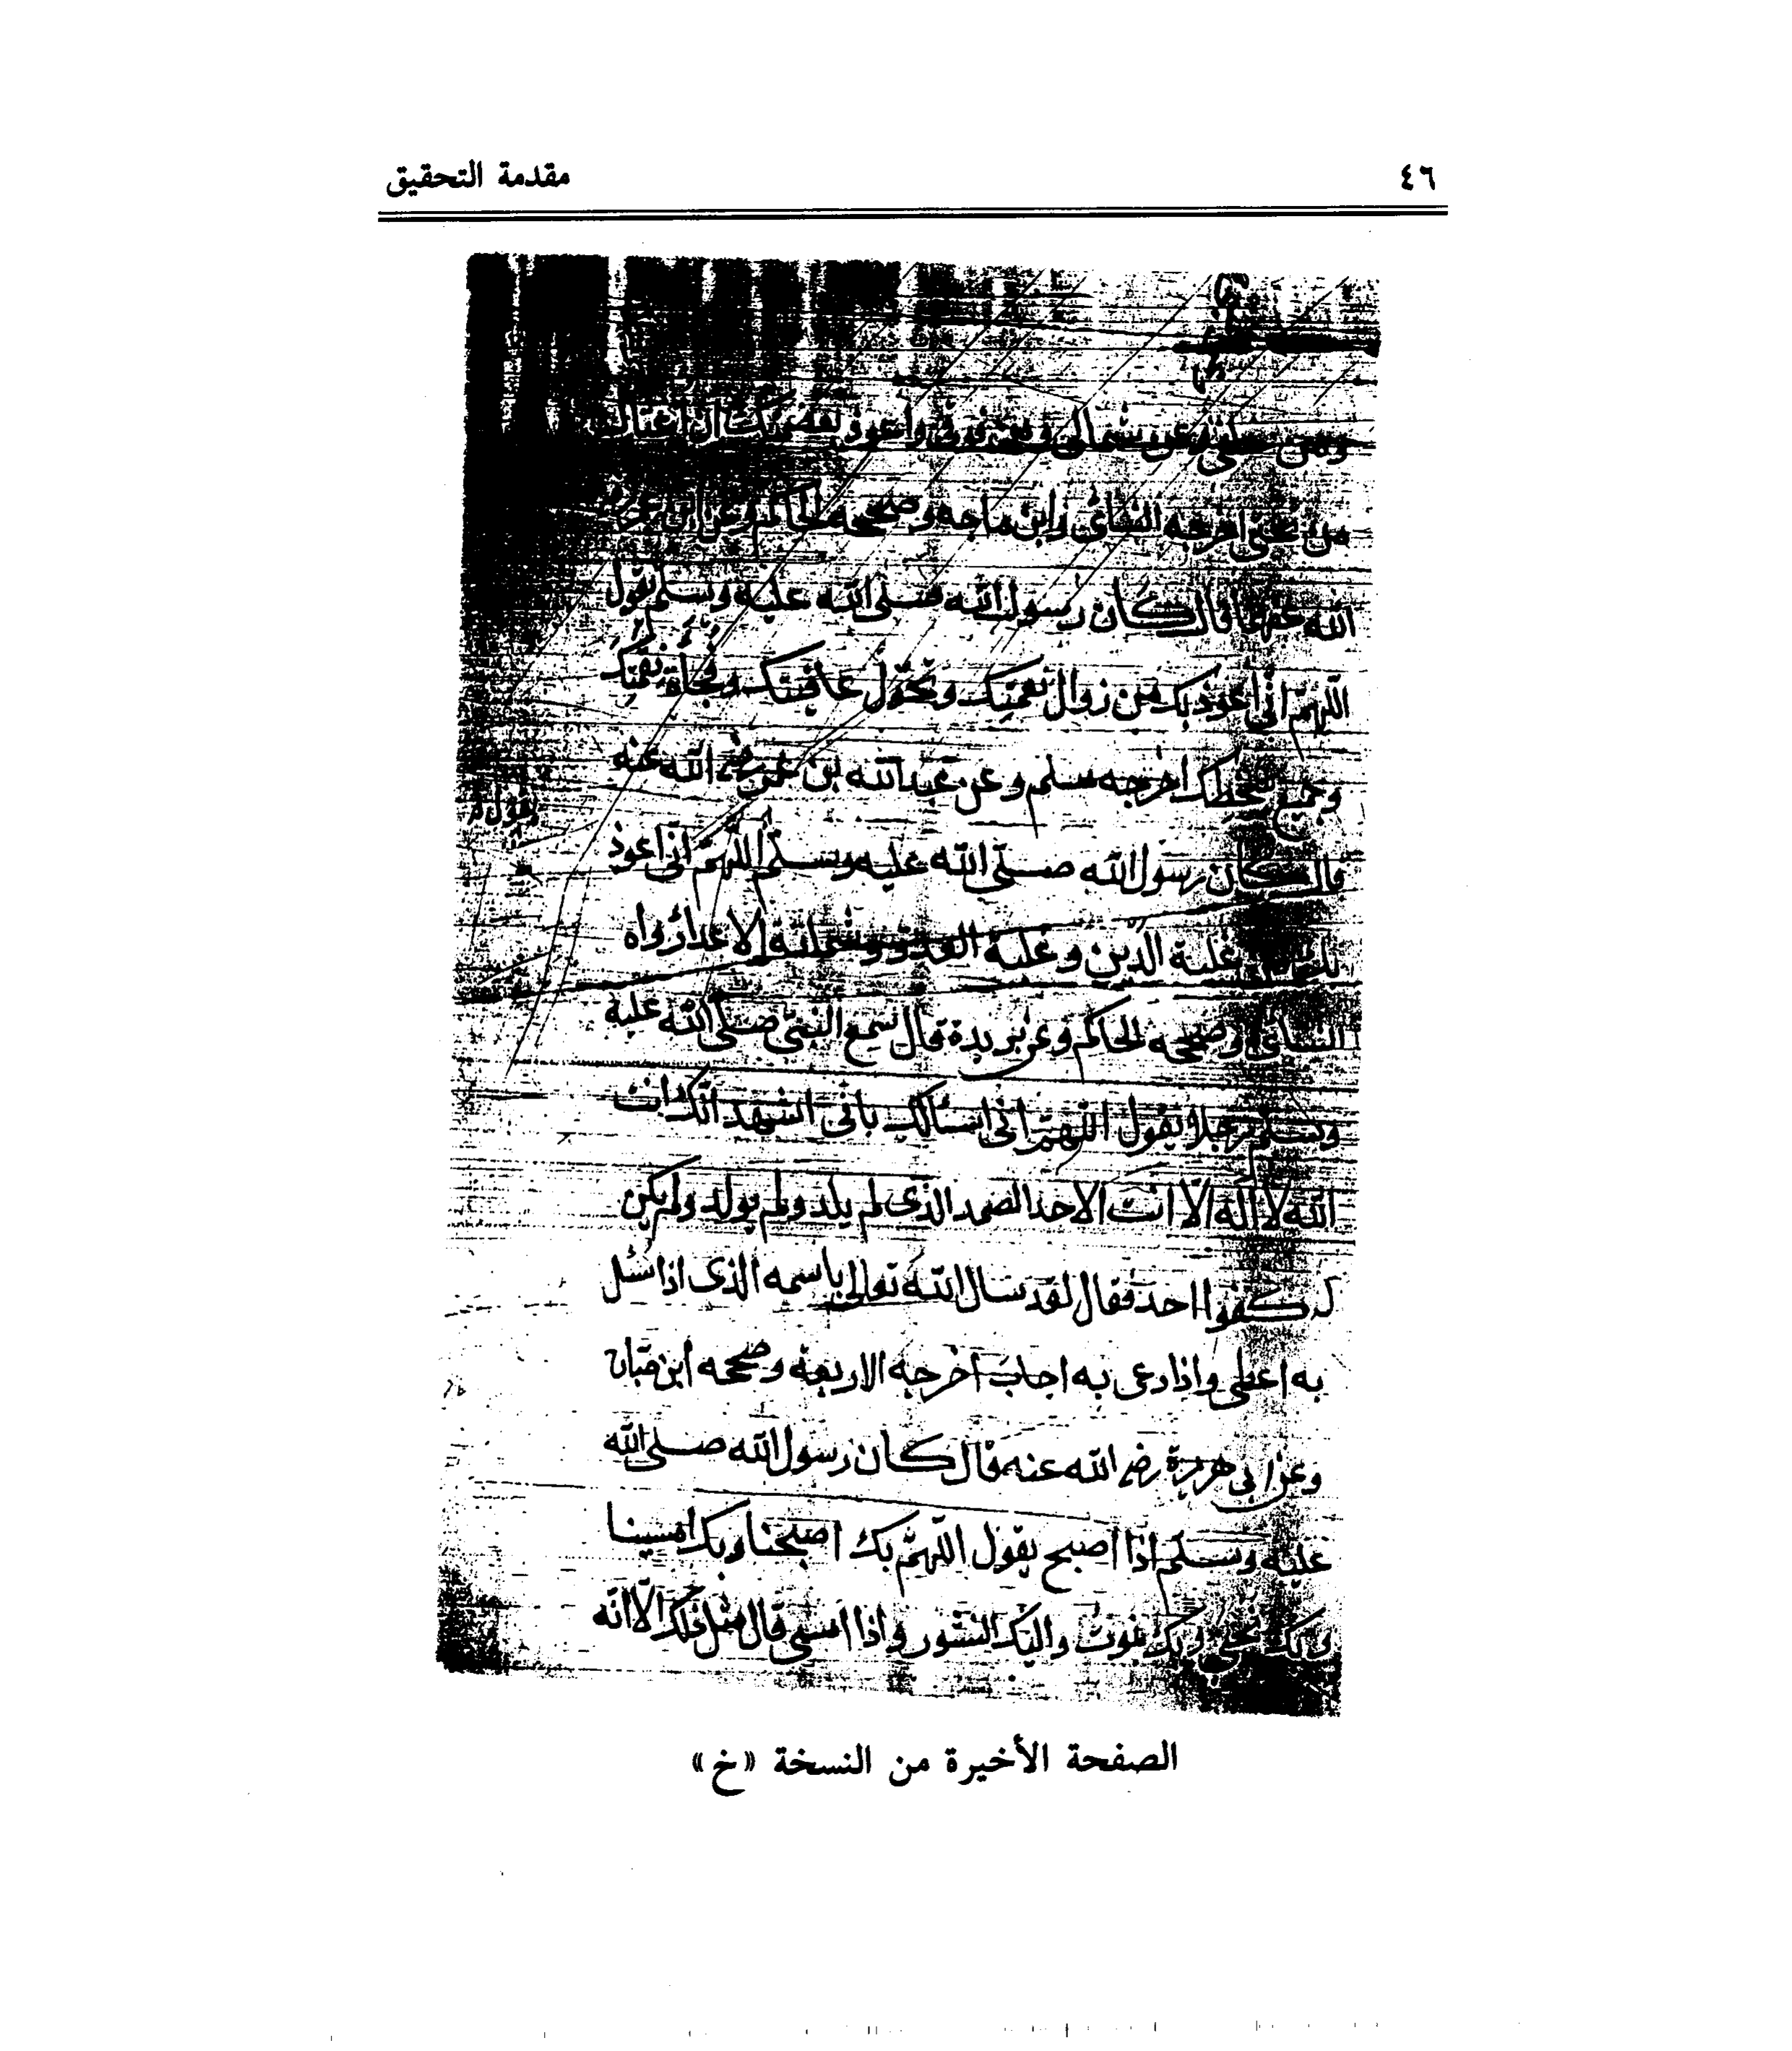 ٤٦
مقدمة التحقيق
وعن شمالي ومن فوقي وأعوذ بعظمتك ان اغتال
من تحتي اخرجه النسائي وابن ماجه وصححه الحاكم وعن ابن عمر
الله عنهما قال كان رسول الله صلى الله عليه وسلم يقول
اللهم اني اعوذ بك من زوال نعمتك وتحول عافيتك وفجأة نقمتك
وجميع سخطك اخرجه مسلم وعن عبد الله بن عمر رضي الله عنه
يقول
قال كان رسول الله صلى الله عليه وسلم اللهم اني اعوذ
بك غلبة الدين وغلبة العدو وشماتة الاعداء رواه
النسائي وصححه الحاكم وعن بريدة قال سمع النبي صلى الله عليه
وسلم رجلا يقول اللهم اني اسئالك باني اشهد انك انت
الله لا اله الا انت الاحد الصمد الذي لم يلد ولم يولد ولم يكن
له كفوا احد فقال لقد سال الله تعالى باسمه الذي اذا سئل
به اعطى واذا دعى به اجاب اخرجه الاربعة وصححه ابن حبان
وعن ابي هريرة رضي الله عنه قال كان رسول الله صلى الله
عليه وسلم اذا اصبح يقول اللهم بك اصبحنا وبك امسينا
وبك نحيى وبك نموت واليك النشور واذا امسى قال مثل ذلك الا انه
الصفحة الأخيرة من النسخة «خ»